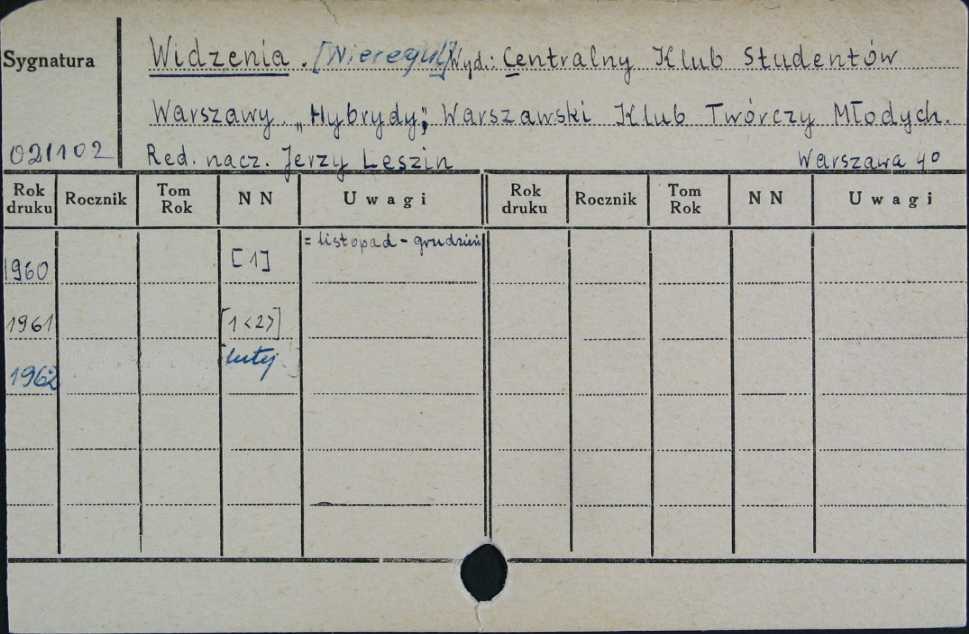 Sygnatura
Widzenia. [Nieregul] Wyd.: Centralny Klub Studentów
Warszawy „Hybrydy"; Warszawski Klub Twórczy Młodych.
021102 Red. nacz. Jerzy Leszin Warszawa 4°
Rok druku Rocznik Tom Rok N N Uwagi Rok druku Rocznik Tom Rok N N Uwagi
1960 [1] = listopad - grudzień
1961 [1<2>]
1962 luty